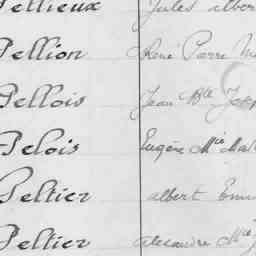 Pellieux Jules albert
Pellion René Pierre
Pellois Jean Bte Joseph
Pelois Eugène Mie
Peltier albert
Peltier alexandre Mie